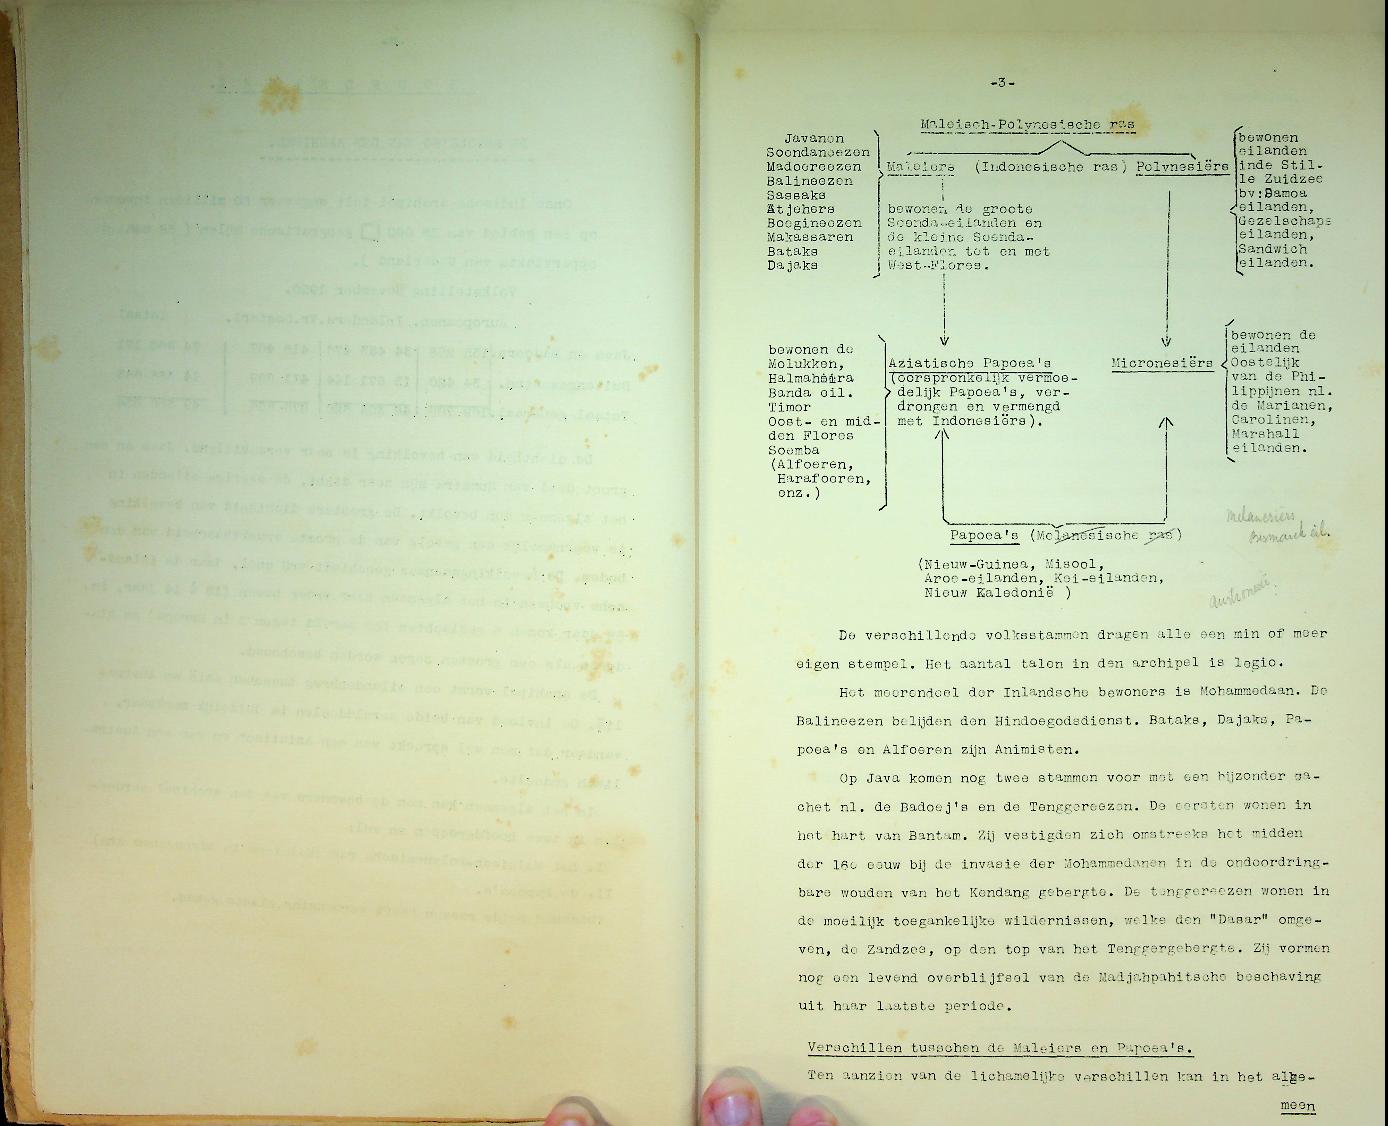 -3-
Maleisch-Polynesische ras
Javanen
Soendaneezen
Madoereezen
Balineezen
Sassaks
Atjehers
Boegineezen
Makassaren
Bataks
Dajaks
Maleiers (Indonesische ras) Polynesiërs
bewonen de groote
Soenda-eilanden en
de kleine Soenda-
eilanden tot en met
West-Flores.
bewonen
eilanden
inde Stil-
le Zuidzee
bv:Samoa
eilanden,
Gezelschaps
eilanden,
Sandwich
eilanden.
bewonen de
Molukken,
Halmaheira
Banda eil.
Timor
Oost- en mid-
den Flores
Soemba
(Alfoeren,
Harafoeren,
enz.)
Aziatische Papoea's
(oorspronkelijk vermoe-
delijk Papoea's, ver-
drongen en vermengd
met Indonesiërs).
Micronesiërs
bewonen de
eilanden
Oostelijk
van de Phi-
lippijnen nl.
de Marianen,
Carolinen,
Marshall
eilanden.
Papoea's (Melanesische ras)
Melanesiërs
Bismarck eil.
(Nieuw-Guinea, Misool,
Aroe-eilanden, Kei-eilanden,
Nieuw Kaledonië )
De verschillende volksstammen dragen alle een min of meer
eigen stempel. Het aantal talen in den archipel is legio.
Het meerendeel der Inlandsche bewoners is Mohammedaan. De
Balineezen belijden den Hindoegodsdienst. Bataks, Dajaks, Pa-
poea's en Alfoeren zijn Animisten.
Op Java komen nog twee stammen voor met een bijzonder ca-
chet nl. de Badoej's en de Tenggereezen. De eersten wonen in
het hart van Bantam. Zij vestigden zich omstreeks het midden
der 16e eeuw bij de invasie der Mohammedanen in de ondoordring-
bare wouden van het Kendang gebergte. De tenggereezen wonen in
de moeilijk toegankelijke wildernissen, welke den "Dasar" omge-
ven, de Zandzee, op den top van het Tenggergebergte. Zij vormen
nog een levend overblijfsel van de Madjahpahitsche beschaving
uit haar laatste periode.
Verschillen tusschen de Maleiers en Papoea's.
Ten aanzien van de lichamelijke verschillen kan in het alge-
meen